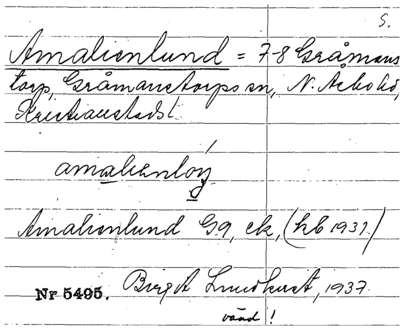 S.
Amalienlund = 7-8 Gråmans
torp, Gråmanstorps sn, N. Åsbo hd,
Kristianstads l.
Amalienlund G9, ek, (hb 1931)
Nr 5495. Birgit Lundkvist, 1937.
vänd!